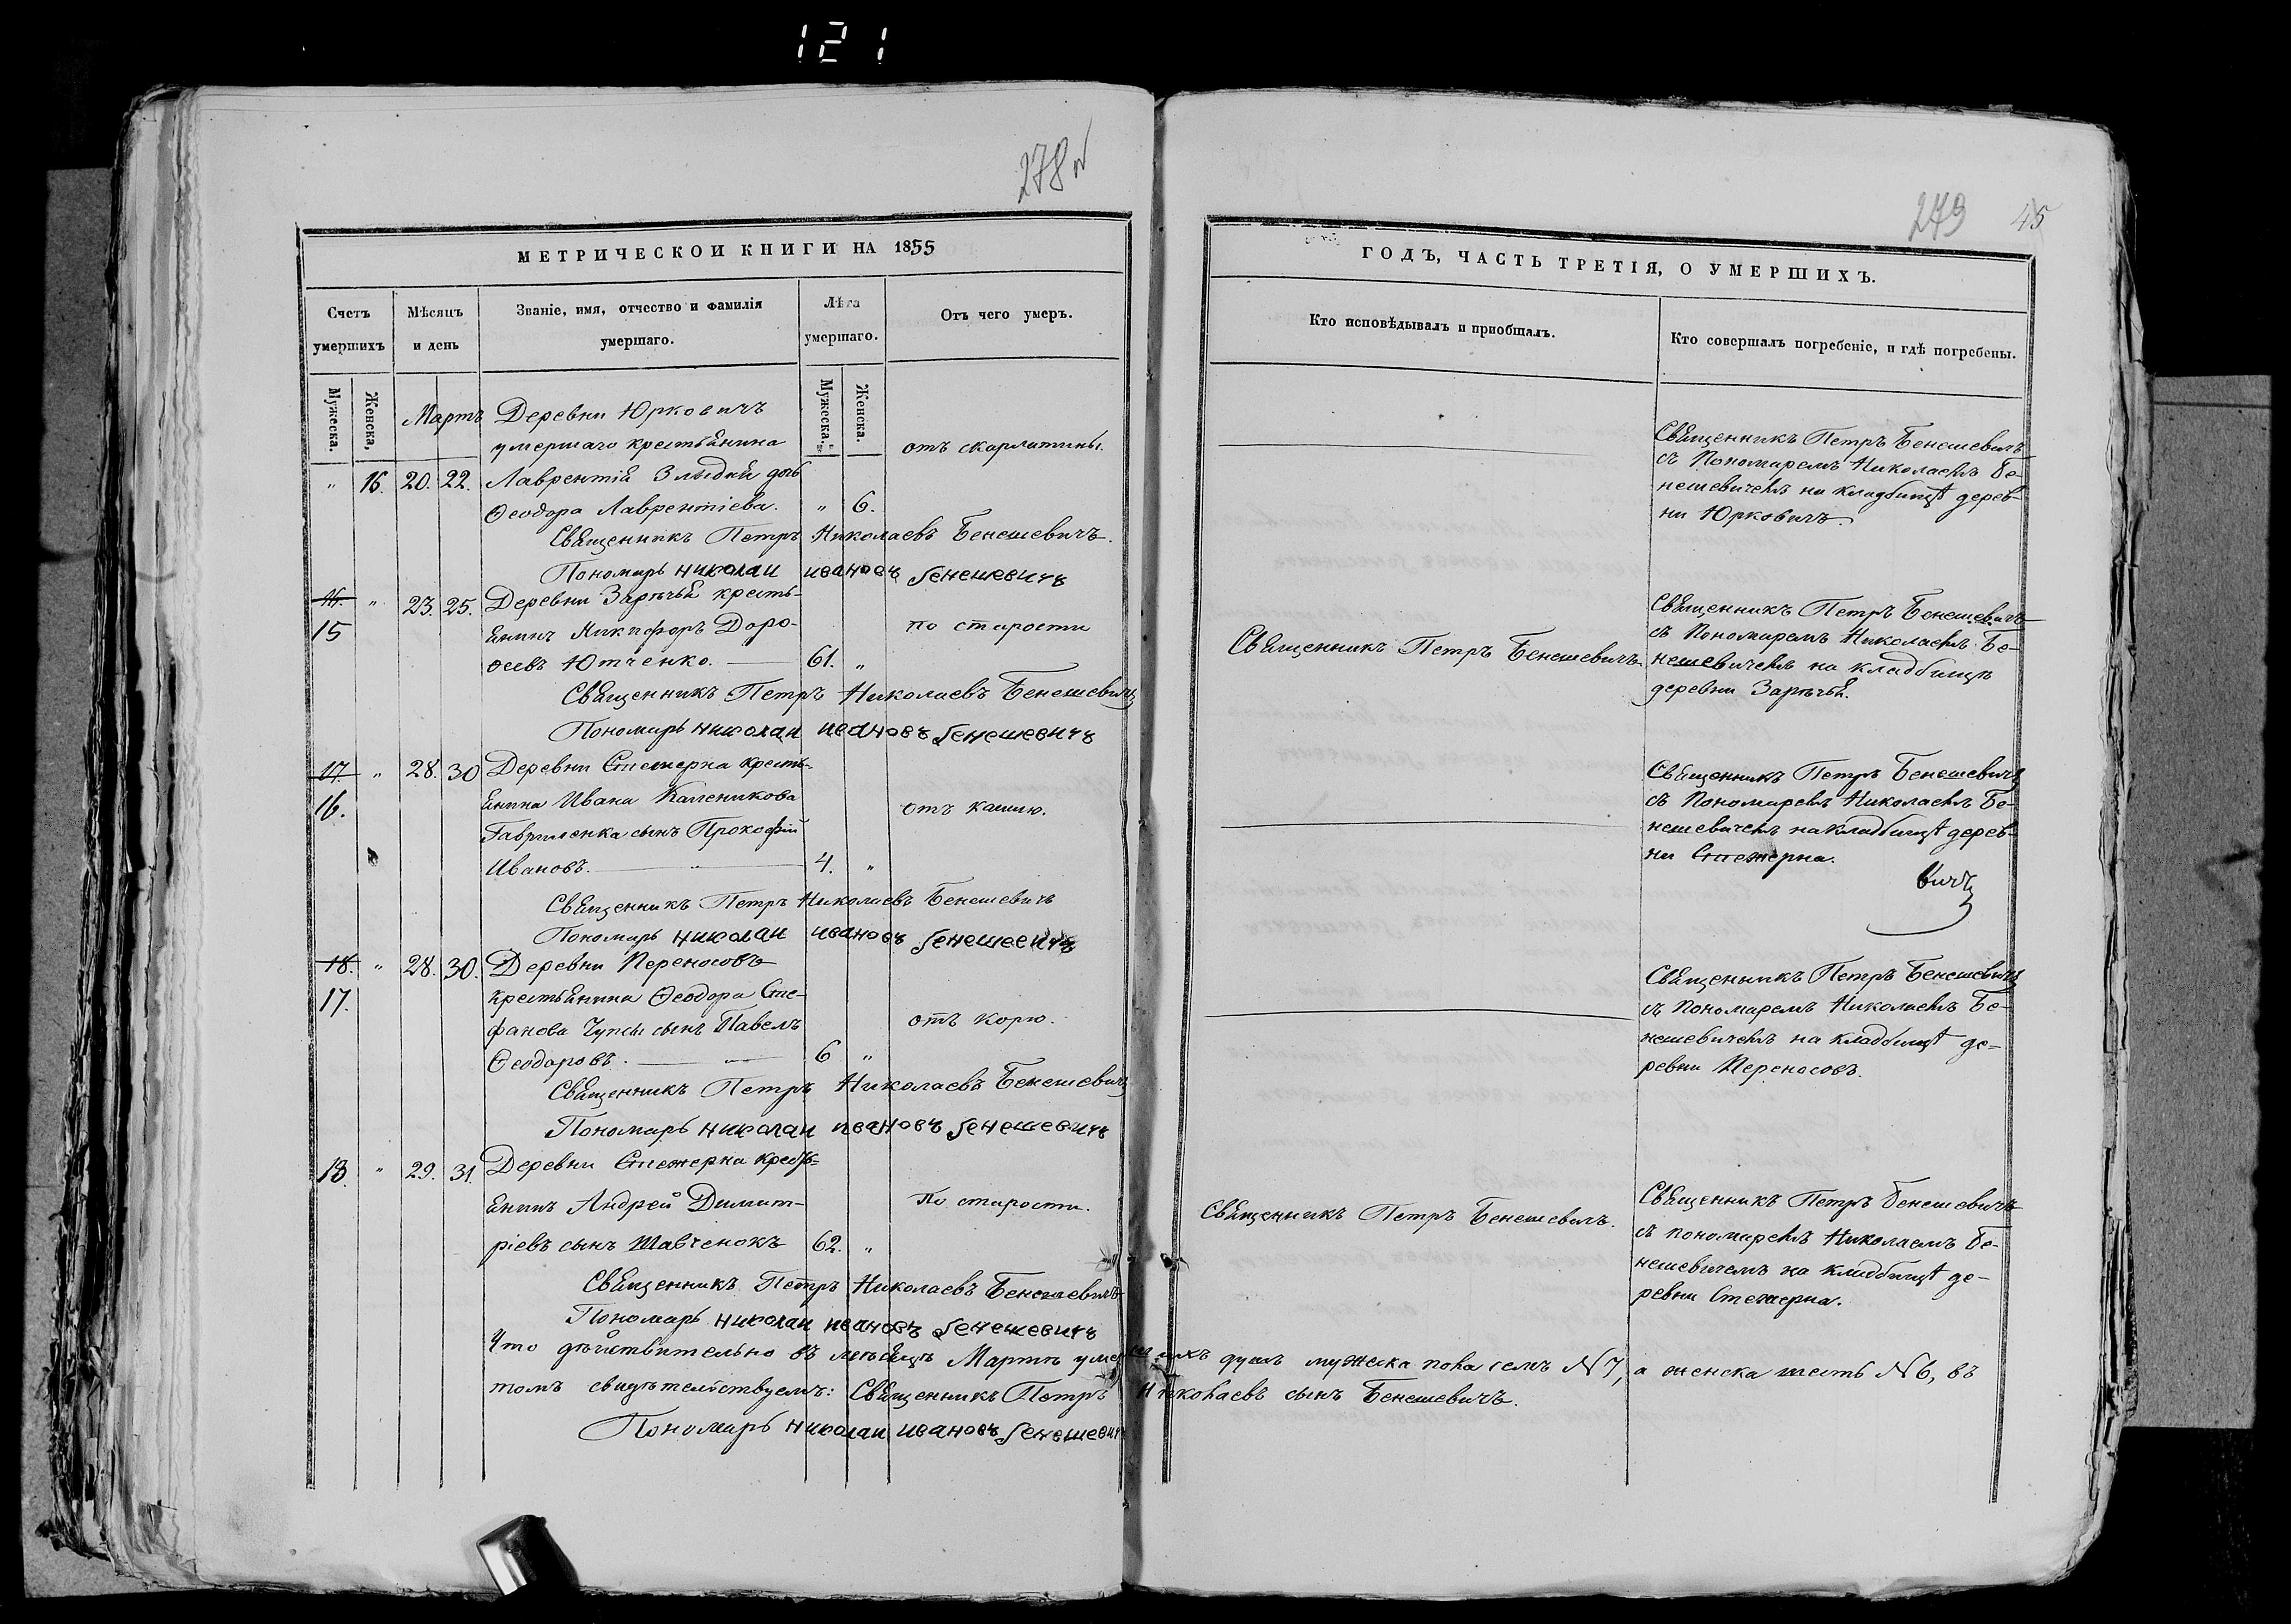 121
278
МЕТРИЧЕСКОИ КНИГИ НА 1855
Счетъ умершихъ
Мѣсяцъ и день
Званіе, имя, отчество и фамилія умершаго.
Лѣта умершаго.
Отъ чего умеръ.
Мужеска.
Женска.
Мужеска.
Женска.
Мартъ
Деревни Юрковичъ
умершаго крестьянина
отъ скарлатины.
" 16. 20. 22. Лаврентія Злыдня дочь
Ѳеодора Лаврентіева. " 6.
Священникъ Петръ Николаевъ Бенешевичъ.
Пономарь николаи ивановъ бенешевичъ
16. " 23. 25. Деревни Зарѣчья кресть-
15 янинъ Никифоръ Доро- по старости
ѳеевъ Ютченко. 61. "
Священникъ Петръ Николаевъ Бенешевичъ
Пономарь николаи ивановъ бенешевичъ
17. " 28. 30 Деревни Стежерна кресть-
16. янина Ивана Каленикова отъ кашлю.
Гавриленка сынъ Прокофій
Ивановъ. 4. "
Священникъ Петръ Николаевъ Бенешевичъ
Пономарь николаи ивановъ бенешевичъ
18. " 28. 30. Деревни Переносовъ
17. крестьянина Ѳеодора Сте-
фанова Чупсы сынъ Павелъ отъ корю.
Ѳеодоровъ. 6 "
Священникъ Петръ Николаевъ Бенешевичъ
Пономарь николаи ивановъ бенешевичъ
18. " 29. 31. Деревни Стежерна кресть-
янинъ Андрей Димит- По старости.
ріевъ сынъ Шавченокъ 62. "
Священникъ Петръ Николаевъ Бенешевичъ
Пономарь николаи ивановъ бенешевичъ
Что дѣйствительно въ мѣсяцѣ Мартѣ умершихъ душъ мужеска пола семь N 7, а женска шесть N 6, въ
томъ свидѣтелствуемъ: Священникъ Петръ Николаевъ сынъ Бенешевичъ.
Пономарь николаи ивановъ бенешевичъ
279 45
ГОДЪ, ЧАСТЬ ТРЕТІЯ, О УМЕРШИХЪ.
Кто исповѣдывалъ и приобщалъ.
Кто совершалъ погребеніе, и гдѣ погребены.
Священникъ Петръ Бенешевичъ
съ Пономаремъ Николаемъ Бе-
нешевичемъ на кладбищѣ дерев-
ни Юрковичъ.
Священникъ Петръ Бенешевичъ
Священникъ Петръ Бенешевичъ
съ Пономаремъ Николаемъ Бе-
нешевичемъ на кладбищѣ
деревни Зарѣчья.
Священникъ Петръ Бенешевичъ
съ Пономаремъ Николаемъ Бе-
нешевичемъ на кладбищѣ дерев-
ни Стежерна.
вичъ
Священникъ Петръ Бенешевичъ
съ Пономаремъ Николаемъ Бе-
нешевичемъ на кладбищѣ де-
ревни Переносовъ.
Священникъ Петръ Бенешевичъ.
Священникъ Петръ Бенешевичъ
съ пономаремъ Николаемъ Бе-
нешевичемъ на кладбищѣ де-
ревни Стежерна.